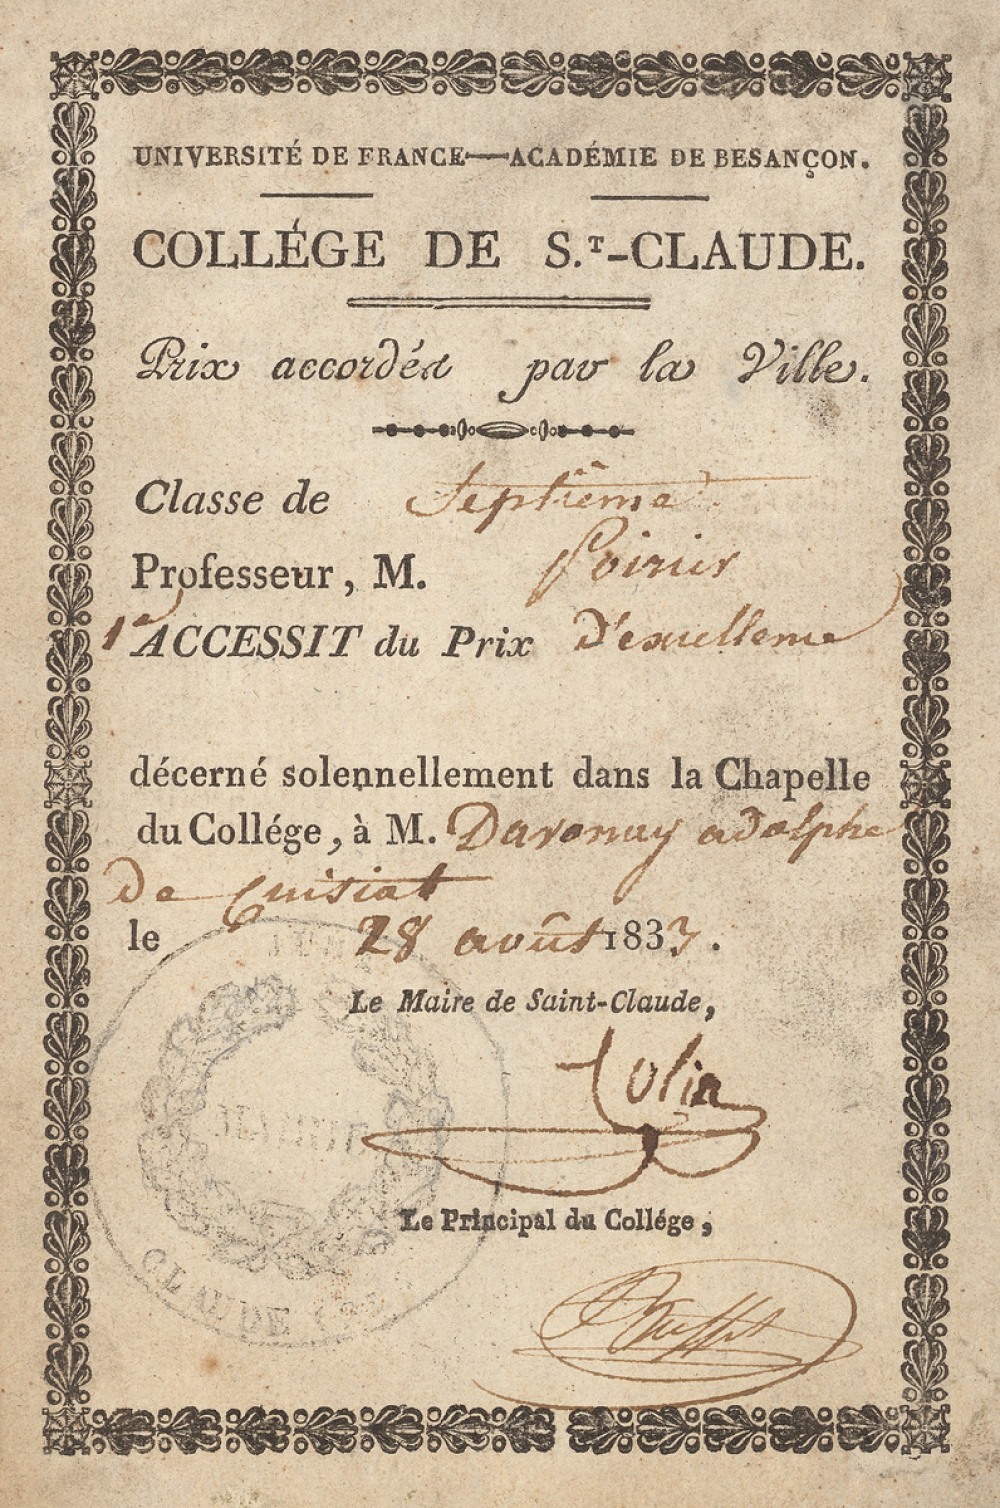 UNIVERSITÉ DE FRANCE—ACADÉMIE DE BESANÇON.
COLLÉGE DE S.T-CLAUDE.
Prix accordés par la Ville.
Classe de Septième
Professeur, M. Poirier
1er ACCESSIT du Prix D'excellence
décerné solennellement dans la Chapelle
du Collége, à M. Davonay adolphe
De Cuisiat
le 28 août 1833.
Le Maire de Saint-Claude,
Colin
Le Principal du Collége,
MAIRIE
CLAUDE